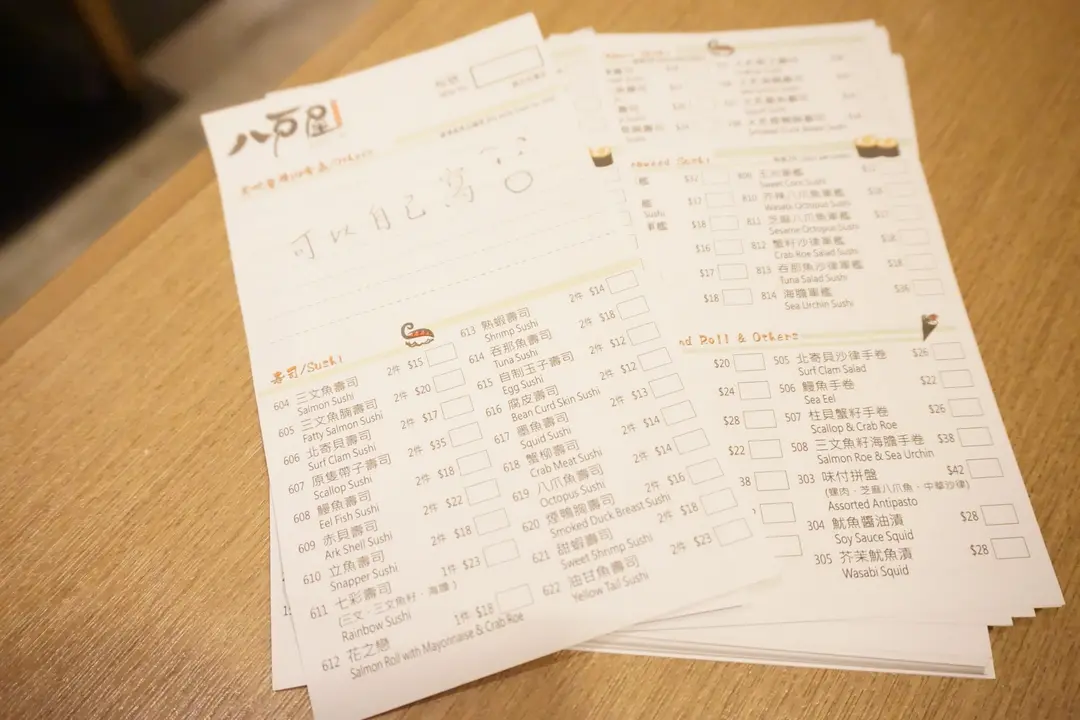 八戸屋
可以自己寫
壽司/Sushi
604 三文魚壽司 2件 $15
Salmon Sushi
605 三文魚腩壽司 2件 $20
Fatty Salmon Sushi
606 北寄貝壽司 2件 $17
Surf Clam Sushi
607 原隻帶子壽司 2件 $35
Scallop Sushi
608 鰻魚壽司 2件 $18
Eel Fish Sushi
609 赤貝壽司 2件 $22
Ark Shell Sushi
610 立魚壽司 2件 $18
Snapper Sushi
611 七彩壽司 1件 $23
(三文、三文魚籽、海膽)
Rainbow Sushi
612 花之戀 1件 $18
Salmon Roll with Mayonnaise & Crab Roe
613 熟蝦壽司 2件 $14
Shrimp Sushi
614 吞那魚壽司 2件 $18
Tuna Sushi
615 自制玉子壽司 2件 $12
Egg Sushi
616 腐皮壽司 2件 $12
Bean Curd Skin Sushi
617 墨魚壽司 2件 $13
Squid Sushi
618 蟹柳壽司 2件 $14
Crab Meat Sushi
619 八爪魚壽司 2件 $14
Octopus Sushi
620 煙鴨胸壽司 2件 $16
Smoked Duck Breast Sushi
621 甜蝦壽司 2件 $18
Sweet Shrimp Sushi
622 油甘魚壽司 2件 $23
Yellow Tail Sushi
Smoked Duck Breast Sushi
Sushi
809 玉米軍艦
Sweet Corn Sushi
810 芥辣八爪魚軍艦
Wasabi Octopus Sushi
811 芝麻八爪魚軍艦
Sesame Octopus Sushi
812 蟹籽沙律軍艦
Crab Roe Salad Sushi
813 吞那魚沙律軍艦
Tuna Salad Sushi
814 海膽軍艦
Sea Urchin Sushi
艦 $32
艦 $17
Sushi
軍艦 $18
$16
$17
$18
nd Roll & Others
$20
$24
$28
$22
38
505 北寄貝沙律手卷 $26
Surf Clam Salad
506 鰻魚手卷 $22
Sea Eel
507 柱貝蟹籽手卷 $26
Scallop & Crab Roe
508 三文魚籽海膽手卷 $38
Salmon Roe & Sea Urchin
303 味付拼盤 $42
(螺肉、芝麻八爪魚、中華沙律)
Assorted Antipasto
304 魷魚醬油漬 $28
Soy Sauce Squid
305 芥茉魷魚漬 $28
Wasabi Squid